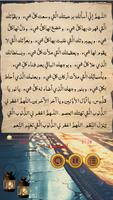 اللهم إني أسألك برحمتك التي وسعت كل شيء ، وبقوتك
التي قهرت بها كل شيء ، وخضع لها كل شيء ، وذل لها كل
شيء ، وبجبروتك التي غلبت بها كل شيء ، وبعزتك التي
لا يقوم لها شيء ، وبعظمتك التي ملأت كل شيء ، وبسلطانك
الذي علا كل شيء ، وبوجهك الباقي بعد فناء كل شيء
وبأسمائك التي ملأت أركان كل شيء ، وبعلمك الذي أحاط
بكل شيء ، وبنور وجهك الذي أضاء له كل شيء ، يا نور يا
قدوس ، يا أول الأولين ويا آخر الآخرين ، اللهم اغفر لي الذنوب
التي تهتك العصم ، اللهم اغفر لي الذنوب التي
تنزل النقم ، اللهم اغفر لي الذنوب التي